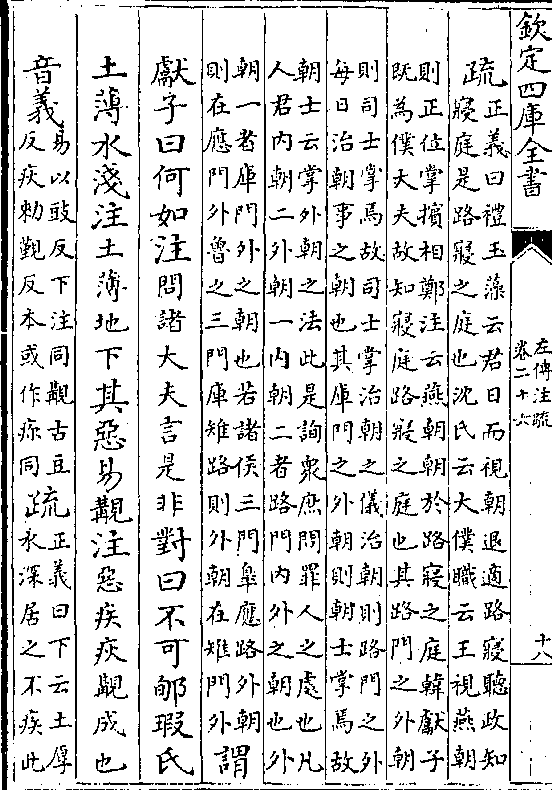 欽定四庫全書
左傳注疏
卷二十六
十八
疏正義曰禮玉藻云君日而視朝退適路寢聽政知
寢庭是路寢之庭也沈氏云大僕職云王視燕朝
則正位掌擯相鄭注云燕朝朝於路寢之庭韓獻子
既為僕大夫故知寢庭路寢之庭也其路門之外朝
則司士掌焉故司士掌治朝之儀治朝則路門之外
每日治朝事之朝也其庫門之外朝則朝士掌焉故
朝士云掌外朝之法此是詢衆庶問罪人之處也凡
人君内朝二外朝一内朝二者路門内外之朝也外
朝一者庫門外之朝也若諸侯三門臯應路外朝
則在應門外魯之三門庫雉路則外朝在雉門外謂
獻子曰何如注問諸大夫言是非對曰不可郇瑕氏
土薄水淺注土薄地下其惡易覯注惡疾疢覯成也
音義易以豉反下注同覯古豆
反疾勑覲反本或作疹同疏正義曰下云土厚
水深居之不疾此